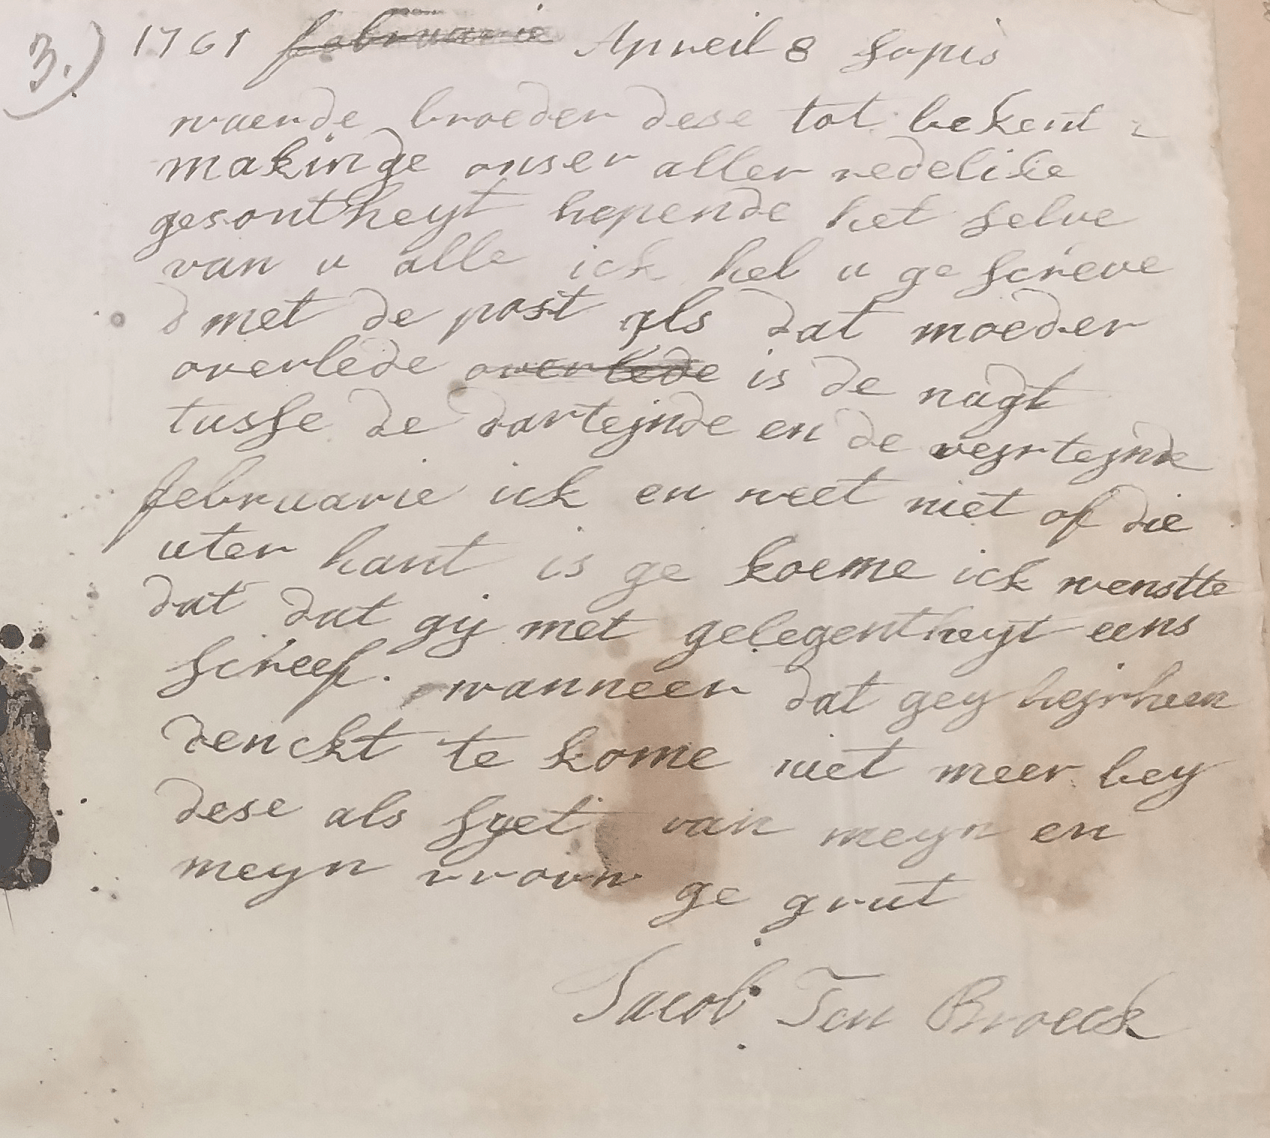 3.) 1761 februarie Apreil 8 sopis
waerde broeder dese tot bekent =
makinge onser aller redelike
gesontheyt hopende het selve
van u alle ick heb u ge screve
d met de post als dat moeder
overlede overlede is de nagt
tusse de dartejnde en de vejrtejnde
februarie ick en weet niet of die
uter hant is ge koeme ick wenstte
dat dat gij met gelegentheyt eens
screef. wanneer dat gey hejrheen
denckt te kome niet meer bey
dese als syet van meyn en
meyn vrouw ge grut
Jacob Ten Broeck